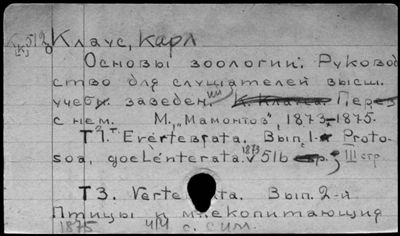 512 Клаус, Карл
Основы зоологии. Руковод
ство для слушателей высш.
учебн. заведен. К. Клауса. Перев
с нем. М., "Мамонтов", 1873-1875.
Т 1. т. Evertebrata. Вып. 1-я Proto-
soa, goelenterata. 1873 516 стр III стр
Т 3. Vertebrata. Вып. 2-я
Птицы и млекопитающия
1875 414 с. с им.